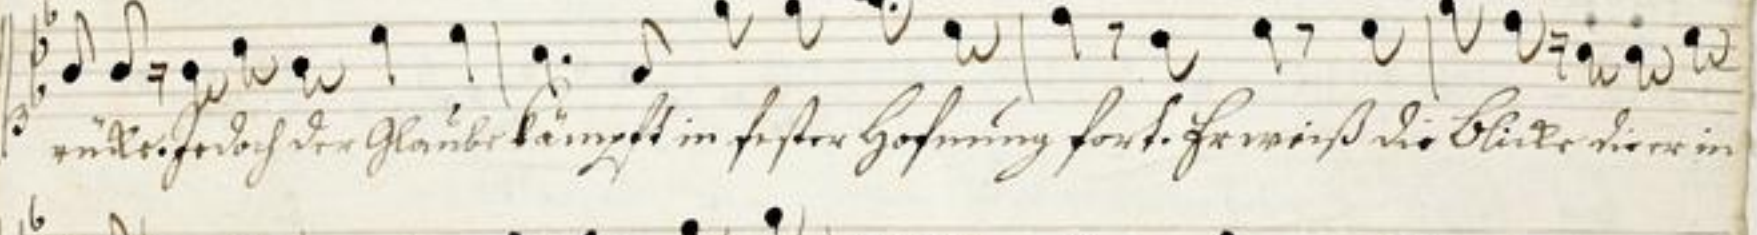 rücke. Jedoch der Glaube kämpft in fester Hofnung fort. Er weiß die Blicke die er in